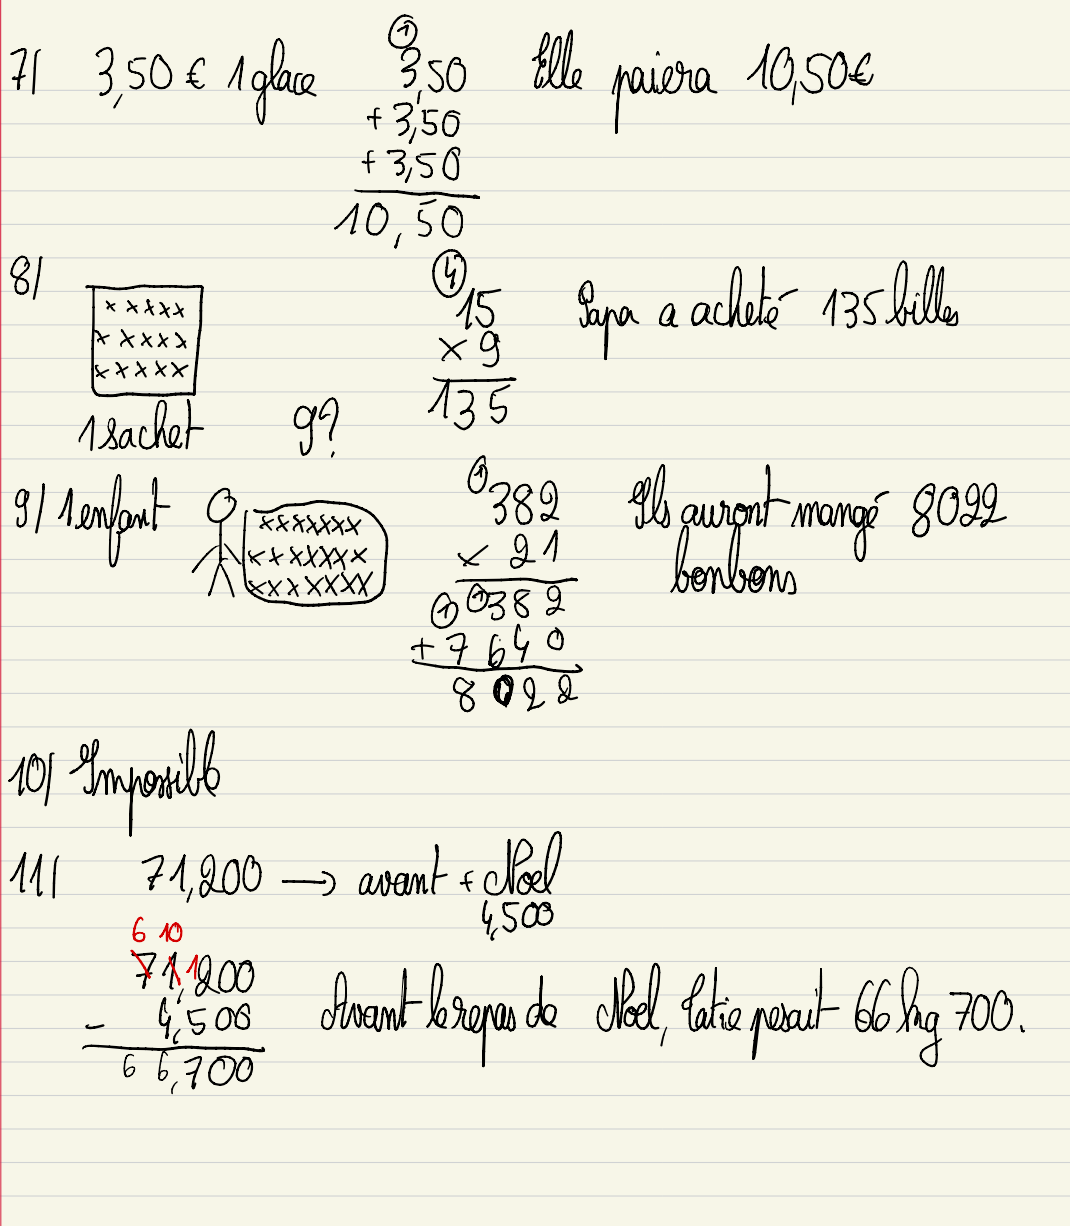 7/ 3,50 € 1 glace
①
3,50
+ 3,50
+ 3,50
10,50
Elle paiera 10,50€
8/
1 sachet 9?
④
15
× 9
135
Papa a acheté 135 billes
9/ 1 enfant
①
382
× 21
① ①382
+ 7640
8022
Ils auront mangé 8022
bonbons
10/ Impossible
11/ 71,200 → avant + Noel
4,500
6 10
71,1200
- 4,500
66,700
Avant le repas de Noel, Tatie pesait 66 kg 700.